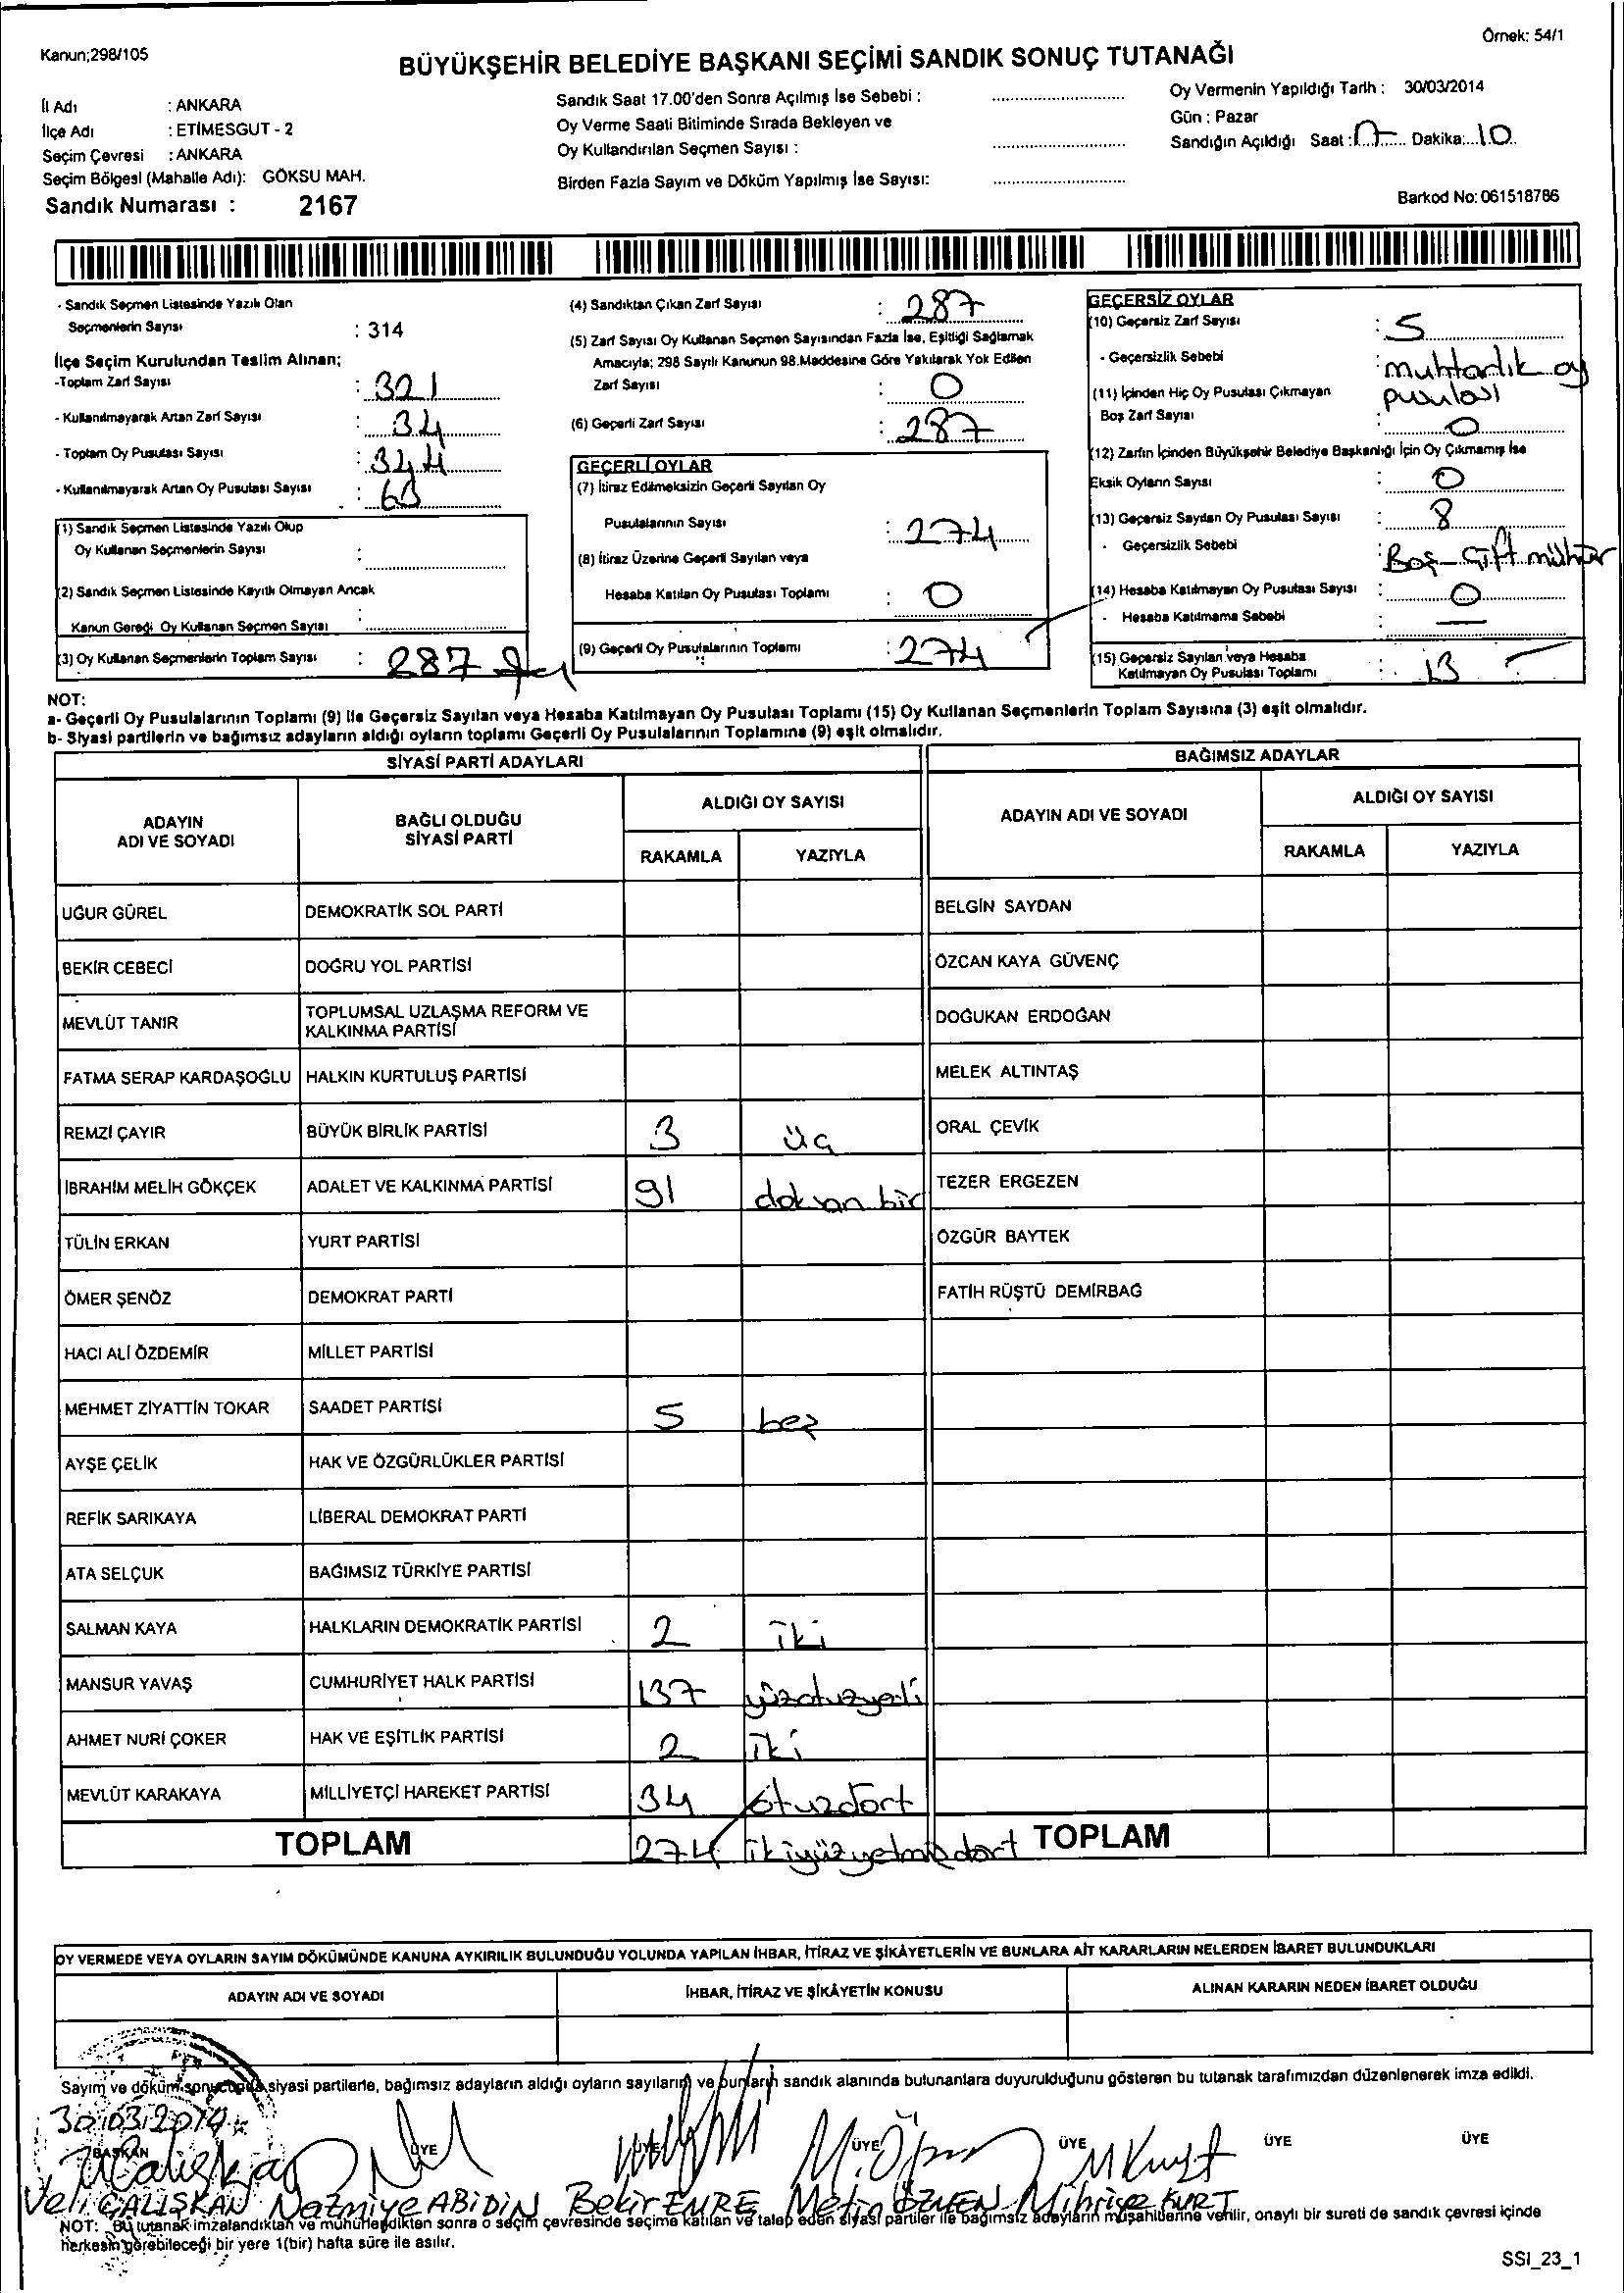 Kanun;298/105
Örnek: 54/1
BÜYÜKŞEHİR BELEDİYE BAŞKANI SEÇİMİ SANDIK SONUÇ TUTANAĞI
İl Adı : ANKARA
İlçe Adı : ETİMESGUT - 2
Seçim Çevresi : ANKARA
Seçim Bölgesi (Mahalle Adı): GÖKSU MAH.
Sandık Numarası : 2167
Sandık Saat 17.00'den Sonra Açılmış İse Sebebi :
Oy Verme Saati Bitiminde Sırada Bekleyen ve
Oy Kullandırılan Seçmen Sayısı :
Birden Fazla Sayım ve Döküm Yapılmış İse Sayısı:
Oy Vermenin Yapıldığı Tarih : 30/03/2014
Gün : Pazar
Sandığın Açıldığı Saat : 17 Dakika: 10
Barkod No: 061518786
- Sandık Seçmen Listesinde Yazılı Olan
Seçmenlerin Sayısı : 314
İlçe Seçim Kurulundan Teslim Alınan;
-Toplam Zarf Sayısı : 321
- Kullanılmayarak Artan Zarf Sayısı : 34
- Toplam Oy Pusulası Sayısı : 344
- Kullanılmayarak Artan Oy Pusulası Sayısı :
(1) Sandık Seçmen Listesinde Yazılı Olup
Oy Kullanan Seçmenlerin Sayısı :
(2) Sandık Seçmen Listesinde Kayıtlı Olmayan Ancak
Kanun Gereği Oy Kullanan Seçmen Sayısı :
(3) Oy Kullanan Seçmenlerin Toplam Sayısı : 287
(4) Sandıktan Çıkan Zarf Sayısı : 287
(5) Zarf Sayısı Oy Kullanan Seçmen Sayısından Fazla İse, Eşitliği Sağlamak
Amacıyla; 298 Sayılı Kanunun 98.Maddesine Göre Yakılarak Yok Edilen
Zarf Sayısı : 0
(6) Geçerli Zarf Sayısı : 287
GEÇERLİ OYLAR
(7) İtiraz Edilmeksizin Geçerli Sayılan Oy
Pusulalarının Sayısı : 274
(8) İtiraz Üzerine Geçerli Sayılan veya
Hesaba Katılan Oy Pusulası Toplamı : 0
(9) Geçerli Oy Pusulalarının Toplamı : 274
GEÇERSİZ OYLAR
(10) Geçersiz Zarf Sayısı : 5
- Geçersizlik Sebebi : muhtarlık oy
pusulası
(11) İçinden Hiç Oy Pusulası Çıkmayan
Boş Zarf Sayısı : 0
(12) Zarfın İçinden Büyükşehir Belediye Başkanlığı İçin Oy Çıkmamış İse
Eksik Oyların Sayısı : 0
(13) Geçersiz Sayılan Oy Pusulası Sayısı : 8
- Geçersizlik Sebebi : Boş - Çift mühür
(14) Hesaba Katılmayan Oy Pusulası Sayısı : 0
- Hesaba Katılmama Sebebi : —
(15) Geçersiz Sayılan veya Hesaba
Katılmayan Oy Pusulası Toplamı : 13
NOT:
a- Geçerli Oy Pusulalarının Toplamı (9) ile Geçersiz Sayılan veya Hesaba Katılmayan Oy Pusulası Toplamı (15) Oy Kullanan Seçmenlerin Toplam Sayısına (3) eşit olmalıdır.
b- Siyasi partilerin ve bağımsız adayların aldığı oyların toplamı Geçerli Oy Pusulalarının Toplamına (9) eşit olmalıdır.
SİYASİ PARTİ ADAYLARI
BAĞIMSIZ ADAYLAR
ADAYIN ADI VE SOYADI
BAĞLI OLDUĞU SİYASİ PARTİ
ALDIĞI OY SAYISI
RAKAMLA YAZIYLA
ADAYIN ADI VE SOYADI
ALDIĞI OY SAYISI
RAKAMLA YAZIYLA
UĞUR GÜREL DEMOKRATİK SOL PARTİ BELGİN SAYDAN
BEKİR CEBECİ DOĞRU YOL PARTİSİ ÖZCAN KAYA GÜVENÇ
MEVLÜT TANIR TOPLUMSAL UZLAŞMA REFORM VE KALKINMA PARTİSİ DOĞUKAN ERDOĞAN
FATMA SERAP KARDAŞOĞLU HALKIN KURTULUŞ PARTİSİ MELEK ALTINTAŞ
REMZİ ÇAYIR BÜYÜK BİRLİK PARTİSİ 3 üç ORAL ÇEVİK
İBRAHİM MELİH GÖKÇEK ADALET VE KALKINMA PARTİSİ 91 doksan bir TEZER ERGEZEN
TÜLİN ERKAN YURT PARTİSİ ÖZGÜR BAYTEK
ÖMER ŞENÖZ DEMOKRAT PARTİ FATİH RÜŞTÜ DEMİRBAĞ
HACI ALİ ÖZDEMİR MİLLET PARTİSİ
MEHMET ZİYATTİN TOKAR SAADET PARTİSİ 5 beş
AYŞE ÇELİK HAK VE ÖZGÜRLÜKLER PARTİSİ
REFİK SARIKAYA LİBERAL DEMOKRAT PARTİ
ATA SELÇUK BAĞIMSIZ TÜRKİYE PARTİSİ
SALMAN KAYA HALKLARIN DEMOKRATİK PARTİSİ 2 iki
MANSUR YAVAŞ CUMHURİYET HALK PARTİSİ 137 yüzotuzyedi
AHMET NURİ ÇOKER HAK VE EŞİTLİK PARTİSİ 2 iki
MEVLÜT KARAKAYA MİLLİYETÇİ HAREKET PARTİSİ 34 otuzdört
TOPLAM 274 ikiyüzyetmişdört TOPLAM
OY VERMEDE VEYA OYLARIN SAYIM DÖKÜMÜNDE KANUNA AYKIRILIK BULUNDUĞU YOLUNDA YAPILAN İHBAR, İTİRAZ VE ŞİKÂYETLERİN VE BUNLARA AİT KARARLARIN NELERDEN İBARET BULUNDUKLARI
ADAYIN ADI VE SOYADI İHBAR, İTİRAZ VE ŞİKÂYETİN KONUSU ALINAN KARARIN NEDEN İBARET OLDUĞU
Sayım ve döküm sonucunda siyasi partilerle, bağımsız adayların aldığı oyların sayılarını ve bunların sandık alanında bulunanlara duyurulduğunu gösteren bu tutanak tarafımızdan düzenlenerek imza edildi.
30.03.2014
BAŞKAN ÜYE ÜYE ÜYE ÜYE ÜYE ÜYE
Veli ÇALIŞKAN Nazmiye ABİDİN Bekir EMRE Metin ÖZMEN Mihriye KURT
NOT: Bu tutanak imzalandıktan ve mühürlendikten sonra o seçim çevresinde seçime katılan ve talep eden siyasi partiler ile bağımsız adayların müşahitlerine verilir, onaylı bir sureti de sandık çevresi içinde
herkesin görebileceği bir yere 1(bir) hafta süre ile asılır.
SSI_23_1